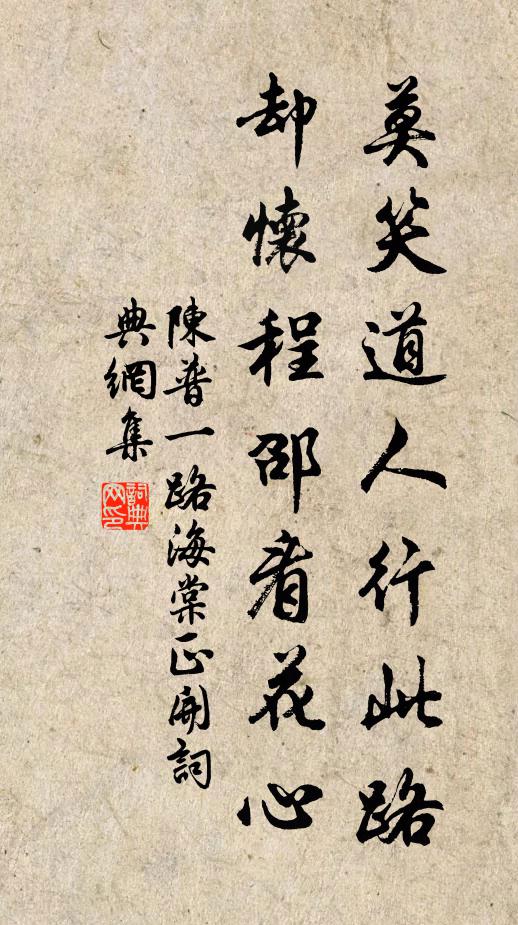 莫笑道人行此路
却懷程邵看花心
陳普一路海棠正開詞
典網集
詞典
网印